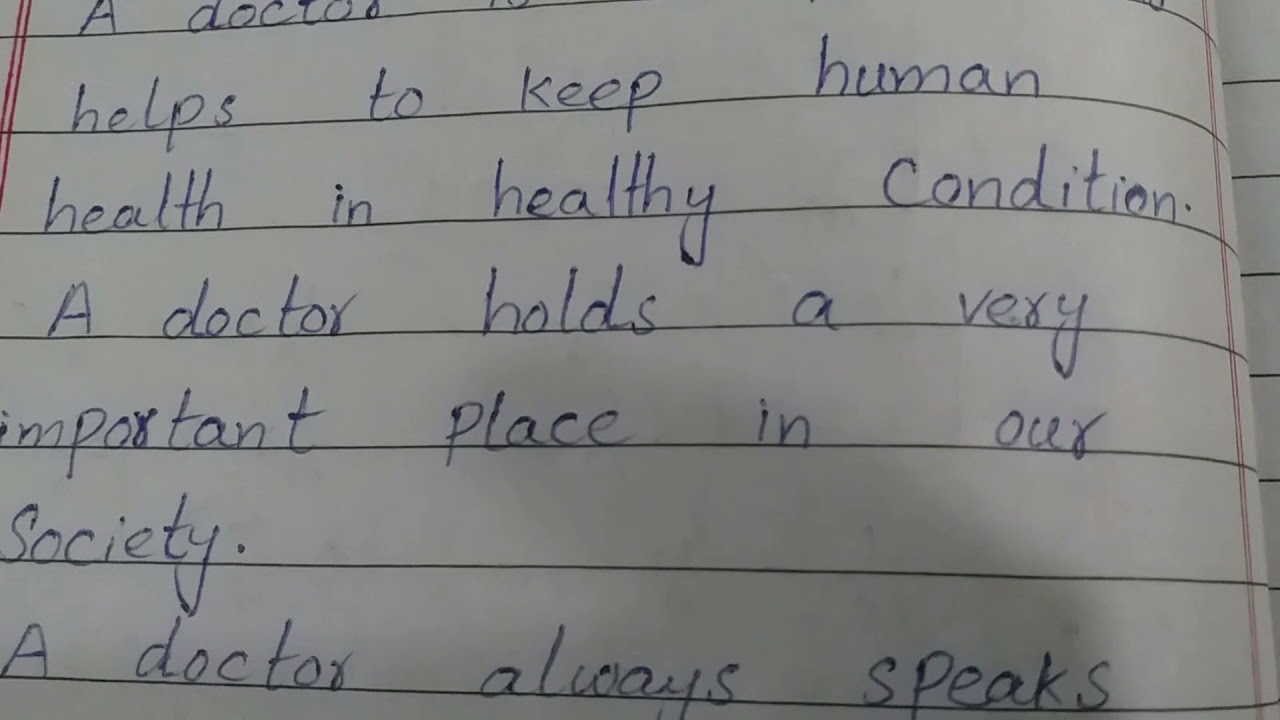 A doctor
helps to keep human
health in healthy Condition.
A doctor holds a very
important place in our
Society.
A doctor always speaks